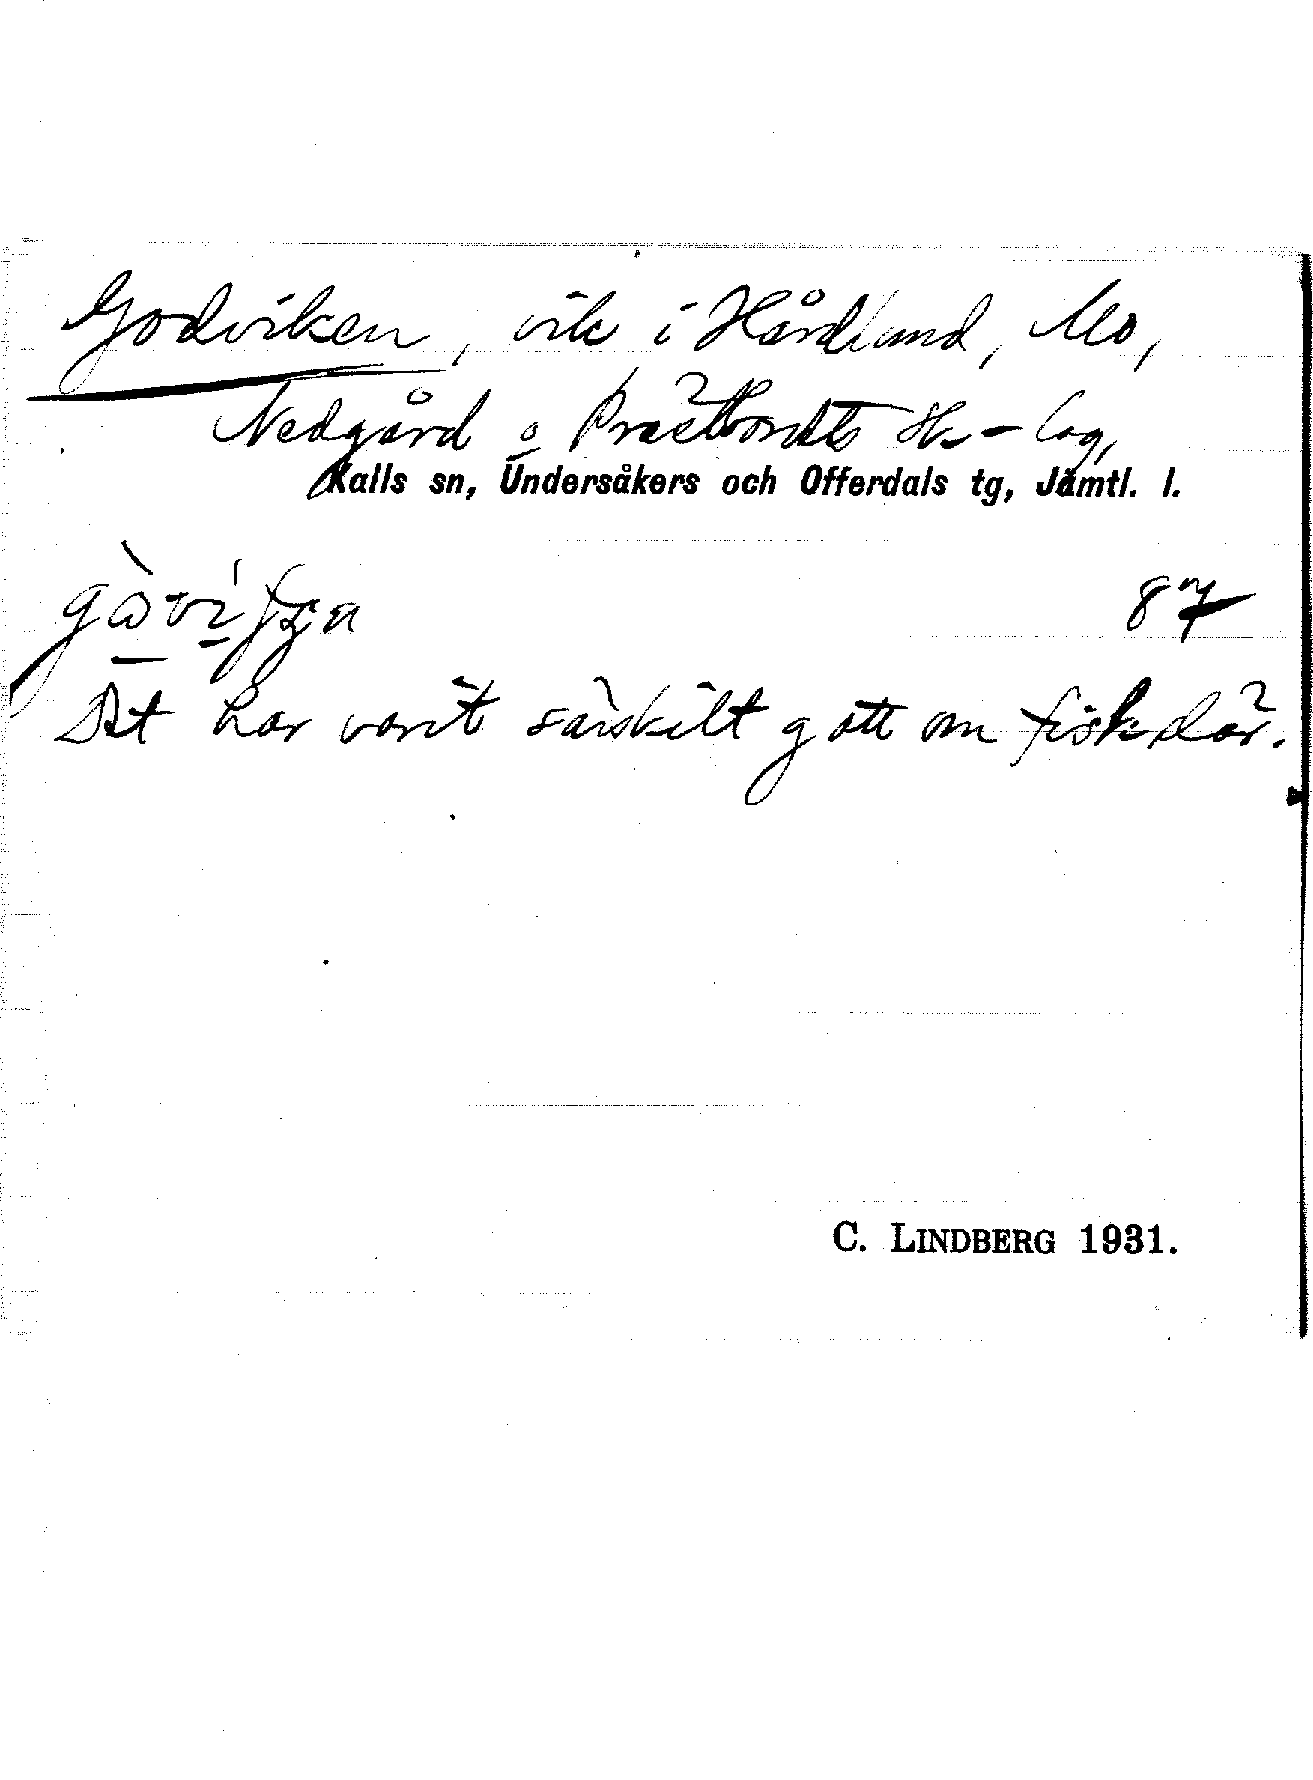 Godviken, vik i Hårdlund, Mo,
Nedgård o Prästbordets Sk-lag,
Kalls sn, Undersåkers och Offerdals tg, Jämtl. l.
87
Det har varit särskilt gott om fisk där.
C. LINDBERG 1931.